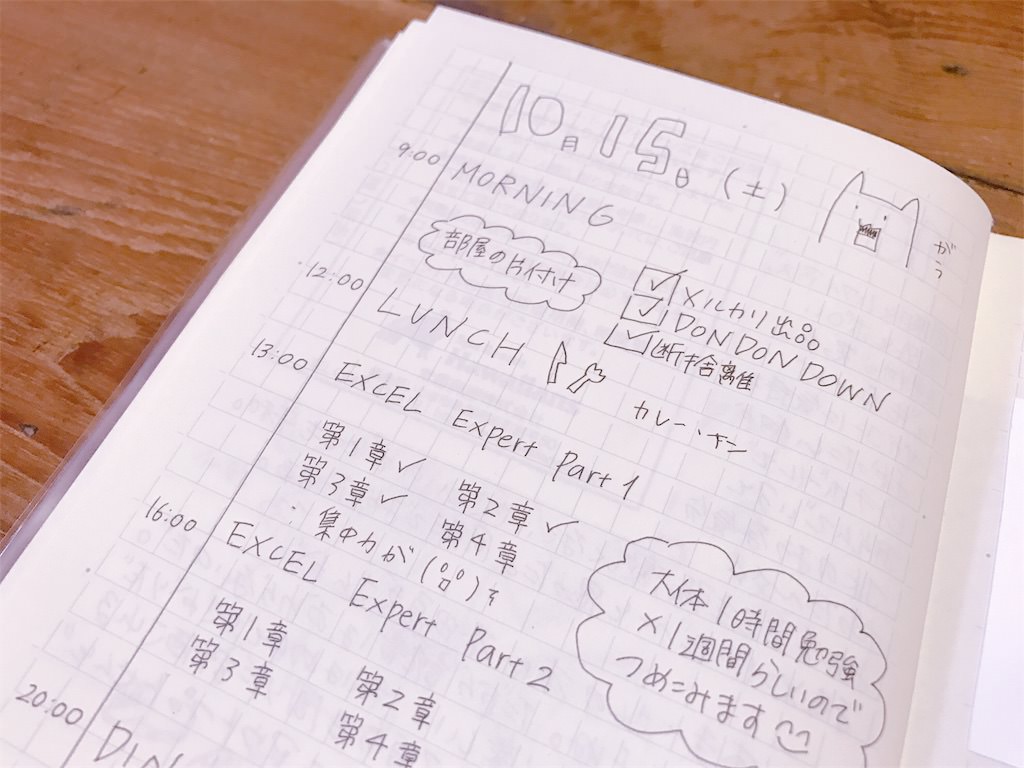 10月15日(土)
がっ
9:00 MORNING
部屋の片付け
☑メルカリ出品
☑DON DON DOWN
☑断捨離
12:00 LUNCH
カレー・ナン
13:00 EXCEL Expert Part 1
第1章✓ 第2章✓
第3章✓ 第4章
: 集中力が
16:00 EXCEL Expert Part 2
第1章 第2章
第3章 第4章
大体1時間勉強
×1週間らしいので
つめこみます
20:00 DIN